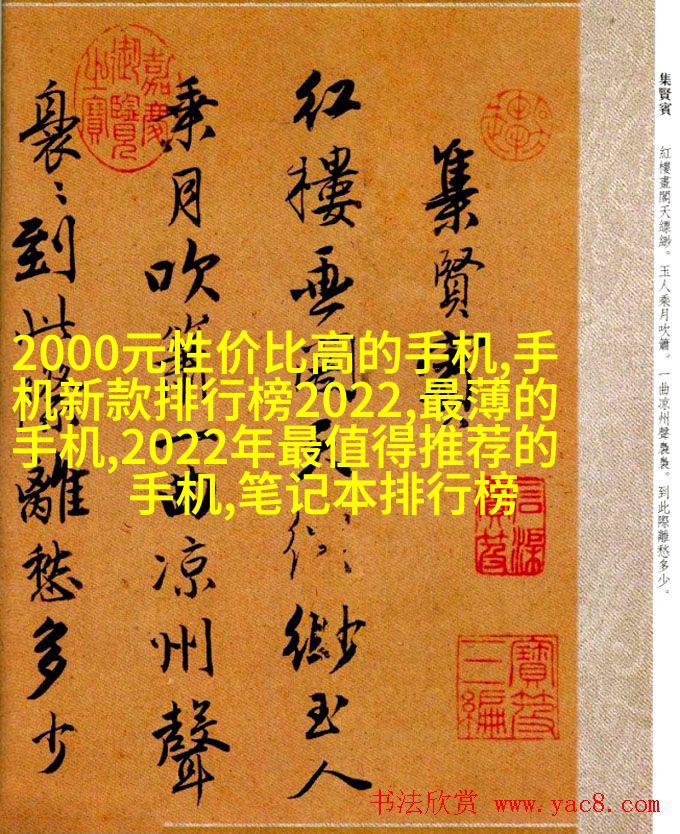 集賢賓
紅樓畫閣天縹緲。玉人乘月吹簫。一曲凉州聲裊裊。到此際離愁多少。
集賢賓
紅樓畫閣天縹緲玉人
乘月吹簫一曲凉州聲
裊裊到此際離愁多少
嘉慶御覽之寶
寶笈三編
2000元性价比高的手机,手
机新款排行榜2022,最薄的
手机,2022年最值得推荐的
手机,笔记本排行榜
书法欣赏 www.yac8.com